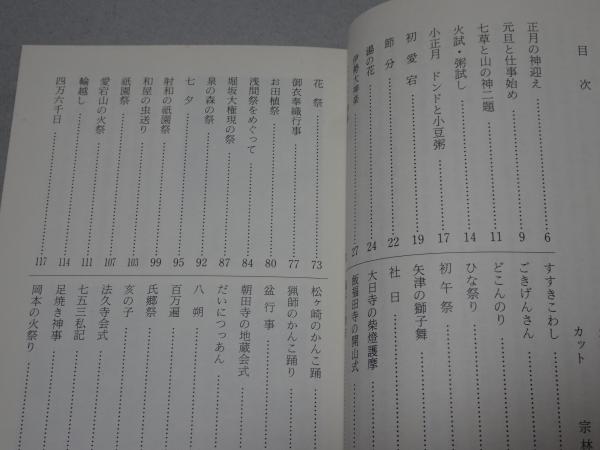 目次
正月の神迎え……6
元旦と仕事始め……9
七草と山の神二題……11
火試・粥試し……14
小正月 ドンドと小豆粥……17
初愛宕……19
節分……22
湯の花……24
伊勢大神楽……27
カット 宗林
すすきこわし
ごきげんさん
どこんのり
ひな祭り
初午祭
矢津の獅子舞
社日
大日寺の柴燈護摩
飯福田寺の開山式
花祭……73
御衣奉織行事……77
お田植祭……80
浅間祭をめぐって……84
堀坂大権現の祭……87
泉の森の祭……92
七夕……95
射和の祇園祭……99
和屋の虫送り……103
祇園祭……107
愛宕山の火祭……111
輪越し……114
四万六千日……117
松ヶ崎のかんこ踊
猟師のかんこ踊り
盆行事
朝田寺の地蔵会式
だいにつっあん
八朔
百万遍
氏郷祭
亥の子
法久寺会式
七五三私記
足焼き神事
岡本の火祭り